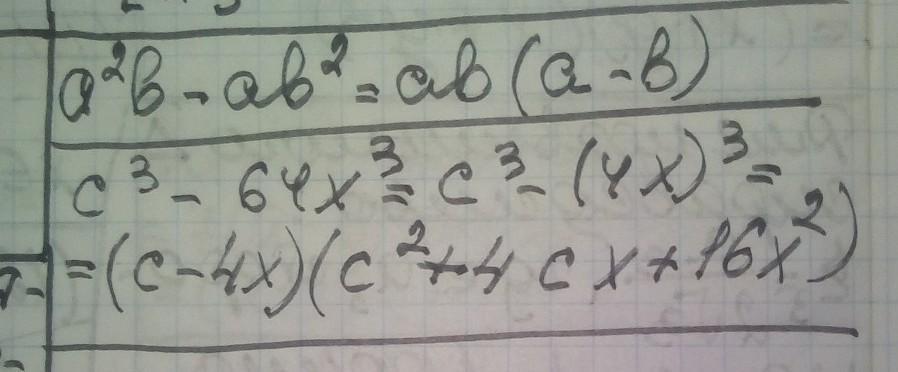 a²b - ab² = ab(a - b)
c³ - 64x³ = c³ - (4x)³ =
= (c - 4x)(c² + 4cx + 16x²)